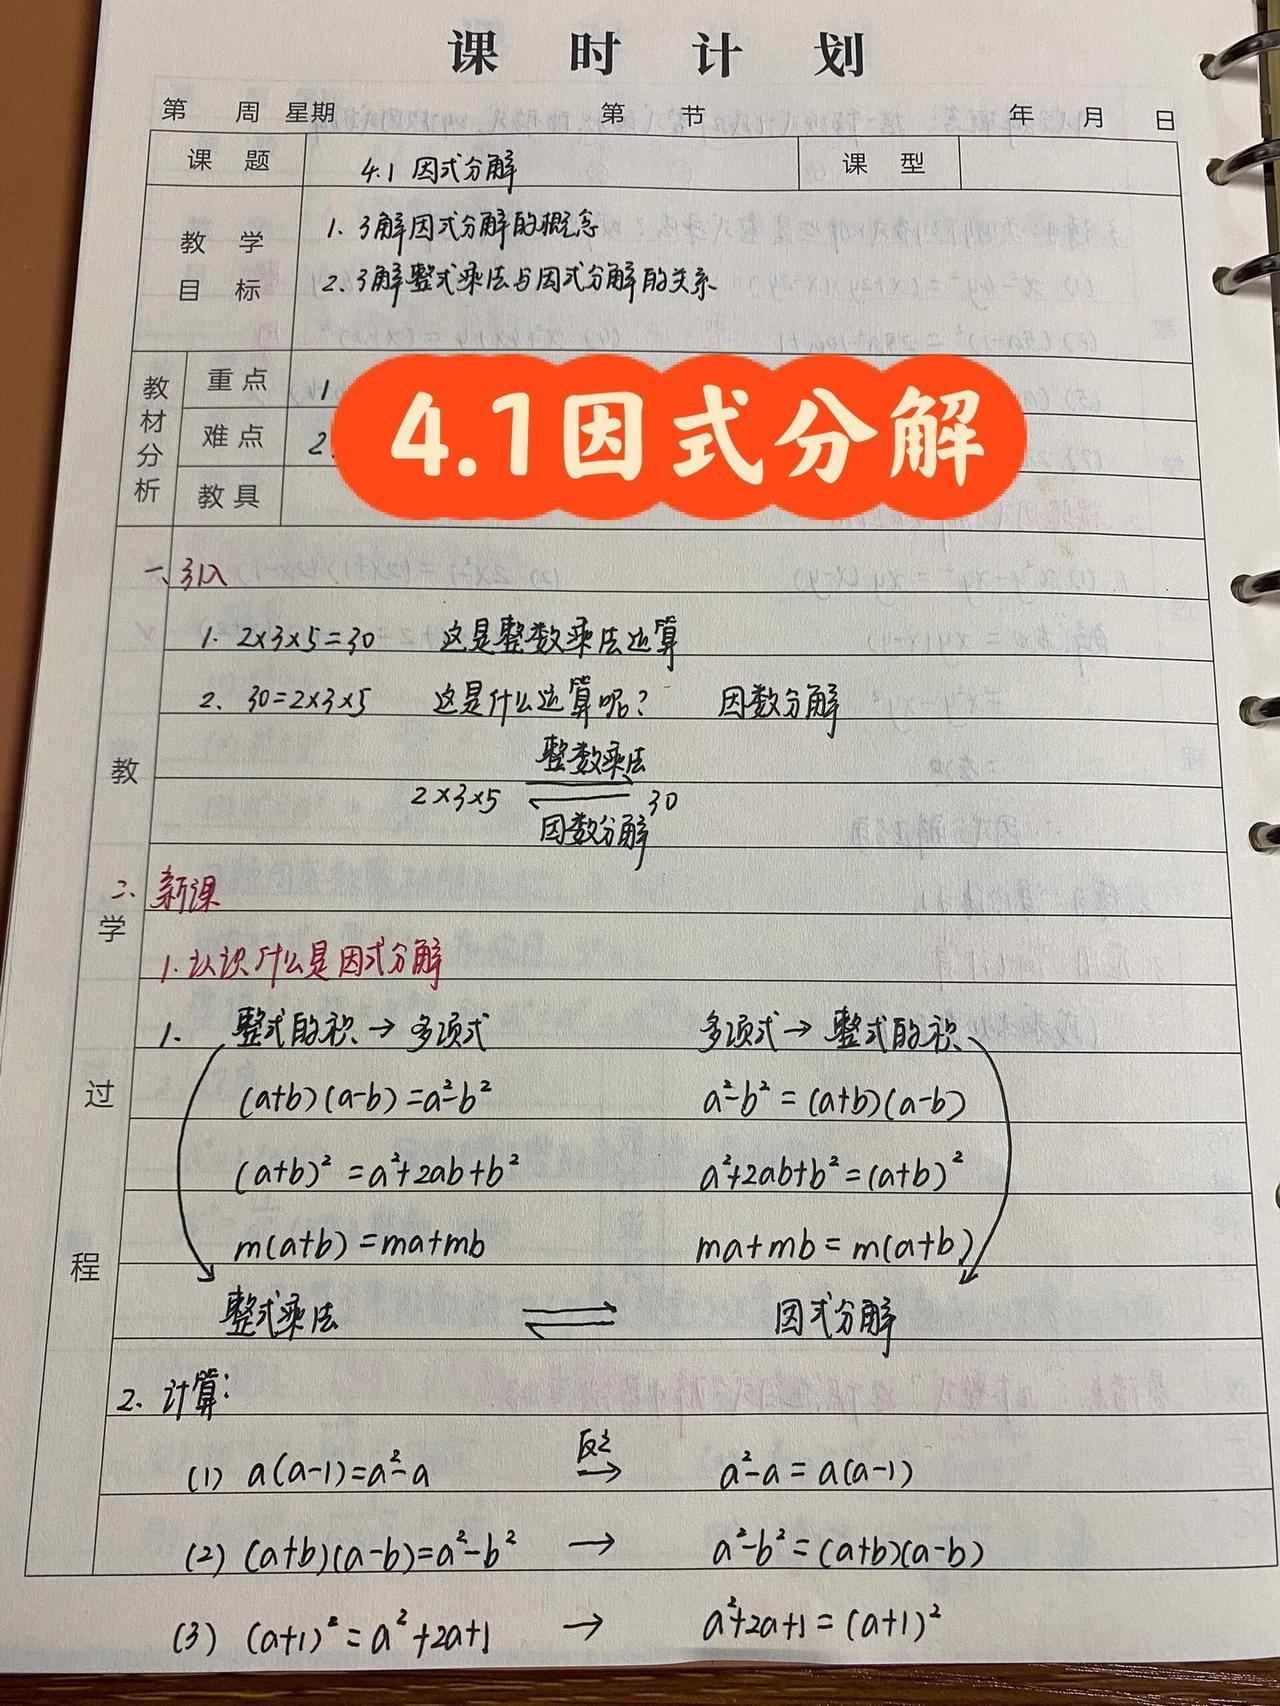 课时计划
第 周 星期 第 节 年 月 日
课题 4.1 因式分解 课型
教学目标
1. 了解因式分解的概念
2. 了解整式乘法与因式分解的关系
教材分析
重点 1
难点 2.
教具
4.1因式分解
教学过程
一、引入
1. 2×3×5=30 这是整数乘法运算
2. 30=2×3×5 这是什么运算呢? 因数分解
整数乘法
2×3×5 ⇌ 30
因数分解
二、新课
1. 认识什么是因式分解
1. 整式的积→多项式 多项式→整式的积
(a+b)(a-b)=a²-b² a²-b²=(a+b)(a-b)
(a+b)²=a²+2ab+b² a²+2ab+b²=(a+b)²
m(a+b)=ma+mb ma+mb=m(a+b)
整式乘法 ⇌ 因式分解
2. 计算:
(1) a(a-1)=a²-a 反之→ a²-a=a(a-1)
(2) (a+b)(a-b)=a²-b² → a²-b²=(a+b)(a-b)
(3) (a+1)²=a²+2a+1 → a²+2a+1=(a+1)²